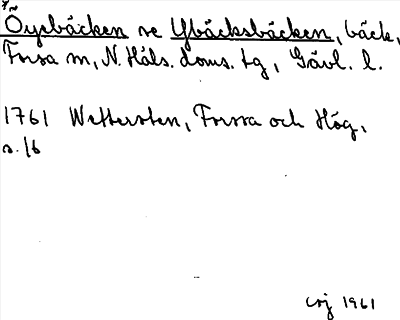 Öysbäcken se Ybäcksbäcken, bäck,
Forsa sn, N. Häls. doms. tg, Gävl. l.
1761 Wettersten, Forssa och Hög,
s. 16
1961